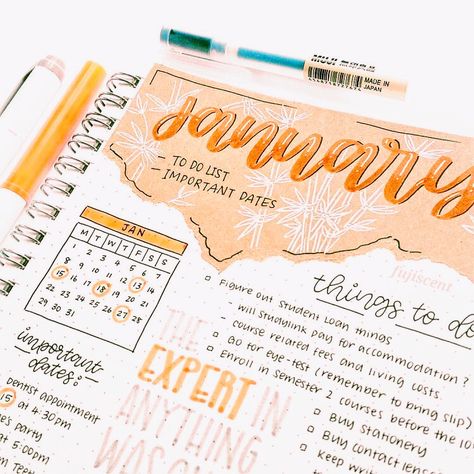 MUJI
MADE IN
JAPAN
January
- TO DO LIST
- IMPORTANT DATES
fujiscent
JAN
M T W T F S S
1 2 3 4 5 6 7
8 9 10 11 12 13 14
15 16 17 18 19 20 21
22 23 24 25 26 27 28
29 30 31
things to do
Figure out Student Loan things
- will studylink pay for accommodation?
- course related fees and living costs.
Go for eye-test (remember to bring slip)
Enroll in Semester 2 courses before the
Buy stationery
Buy contact
Keep
THE
EXPERT IN
ANYTHING
WAS
important
dates:
Dentist appointment
15 at 4:30pm
party
at 5:00pm